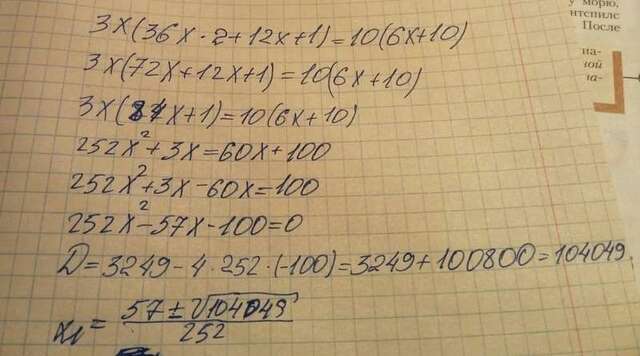 3x(36x·2+12x+1)=10(6x+10)
3x(72x+12x+1)=10(6x+10)
3x(84x+1)=10(6x+10)
252x²+3x=60x+100
252x²+3x-60x=100
252x²-57x-100=0
D=3249-4·252·(-100)=3249+100800=104049.
x₁=(57±√104049)/252
у морю,
нтспилс
После
на-
ной
на-